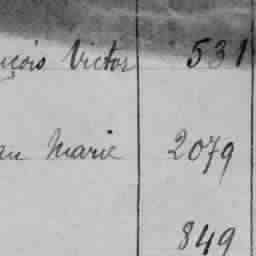 çois Victor 531
an Marie 2079
849